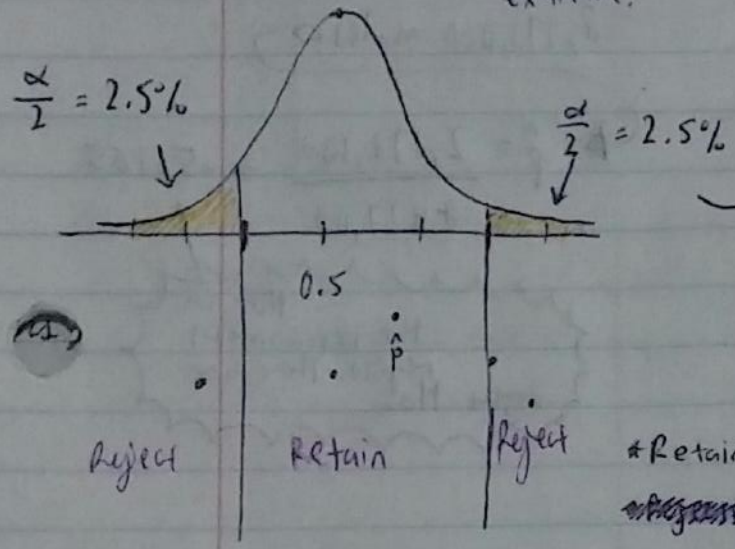 α/2 = 2.5%
α/2 = 2.5%
0.5
p̂
Reject
Retain
Reject